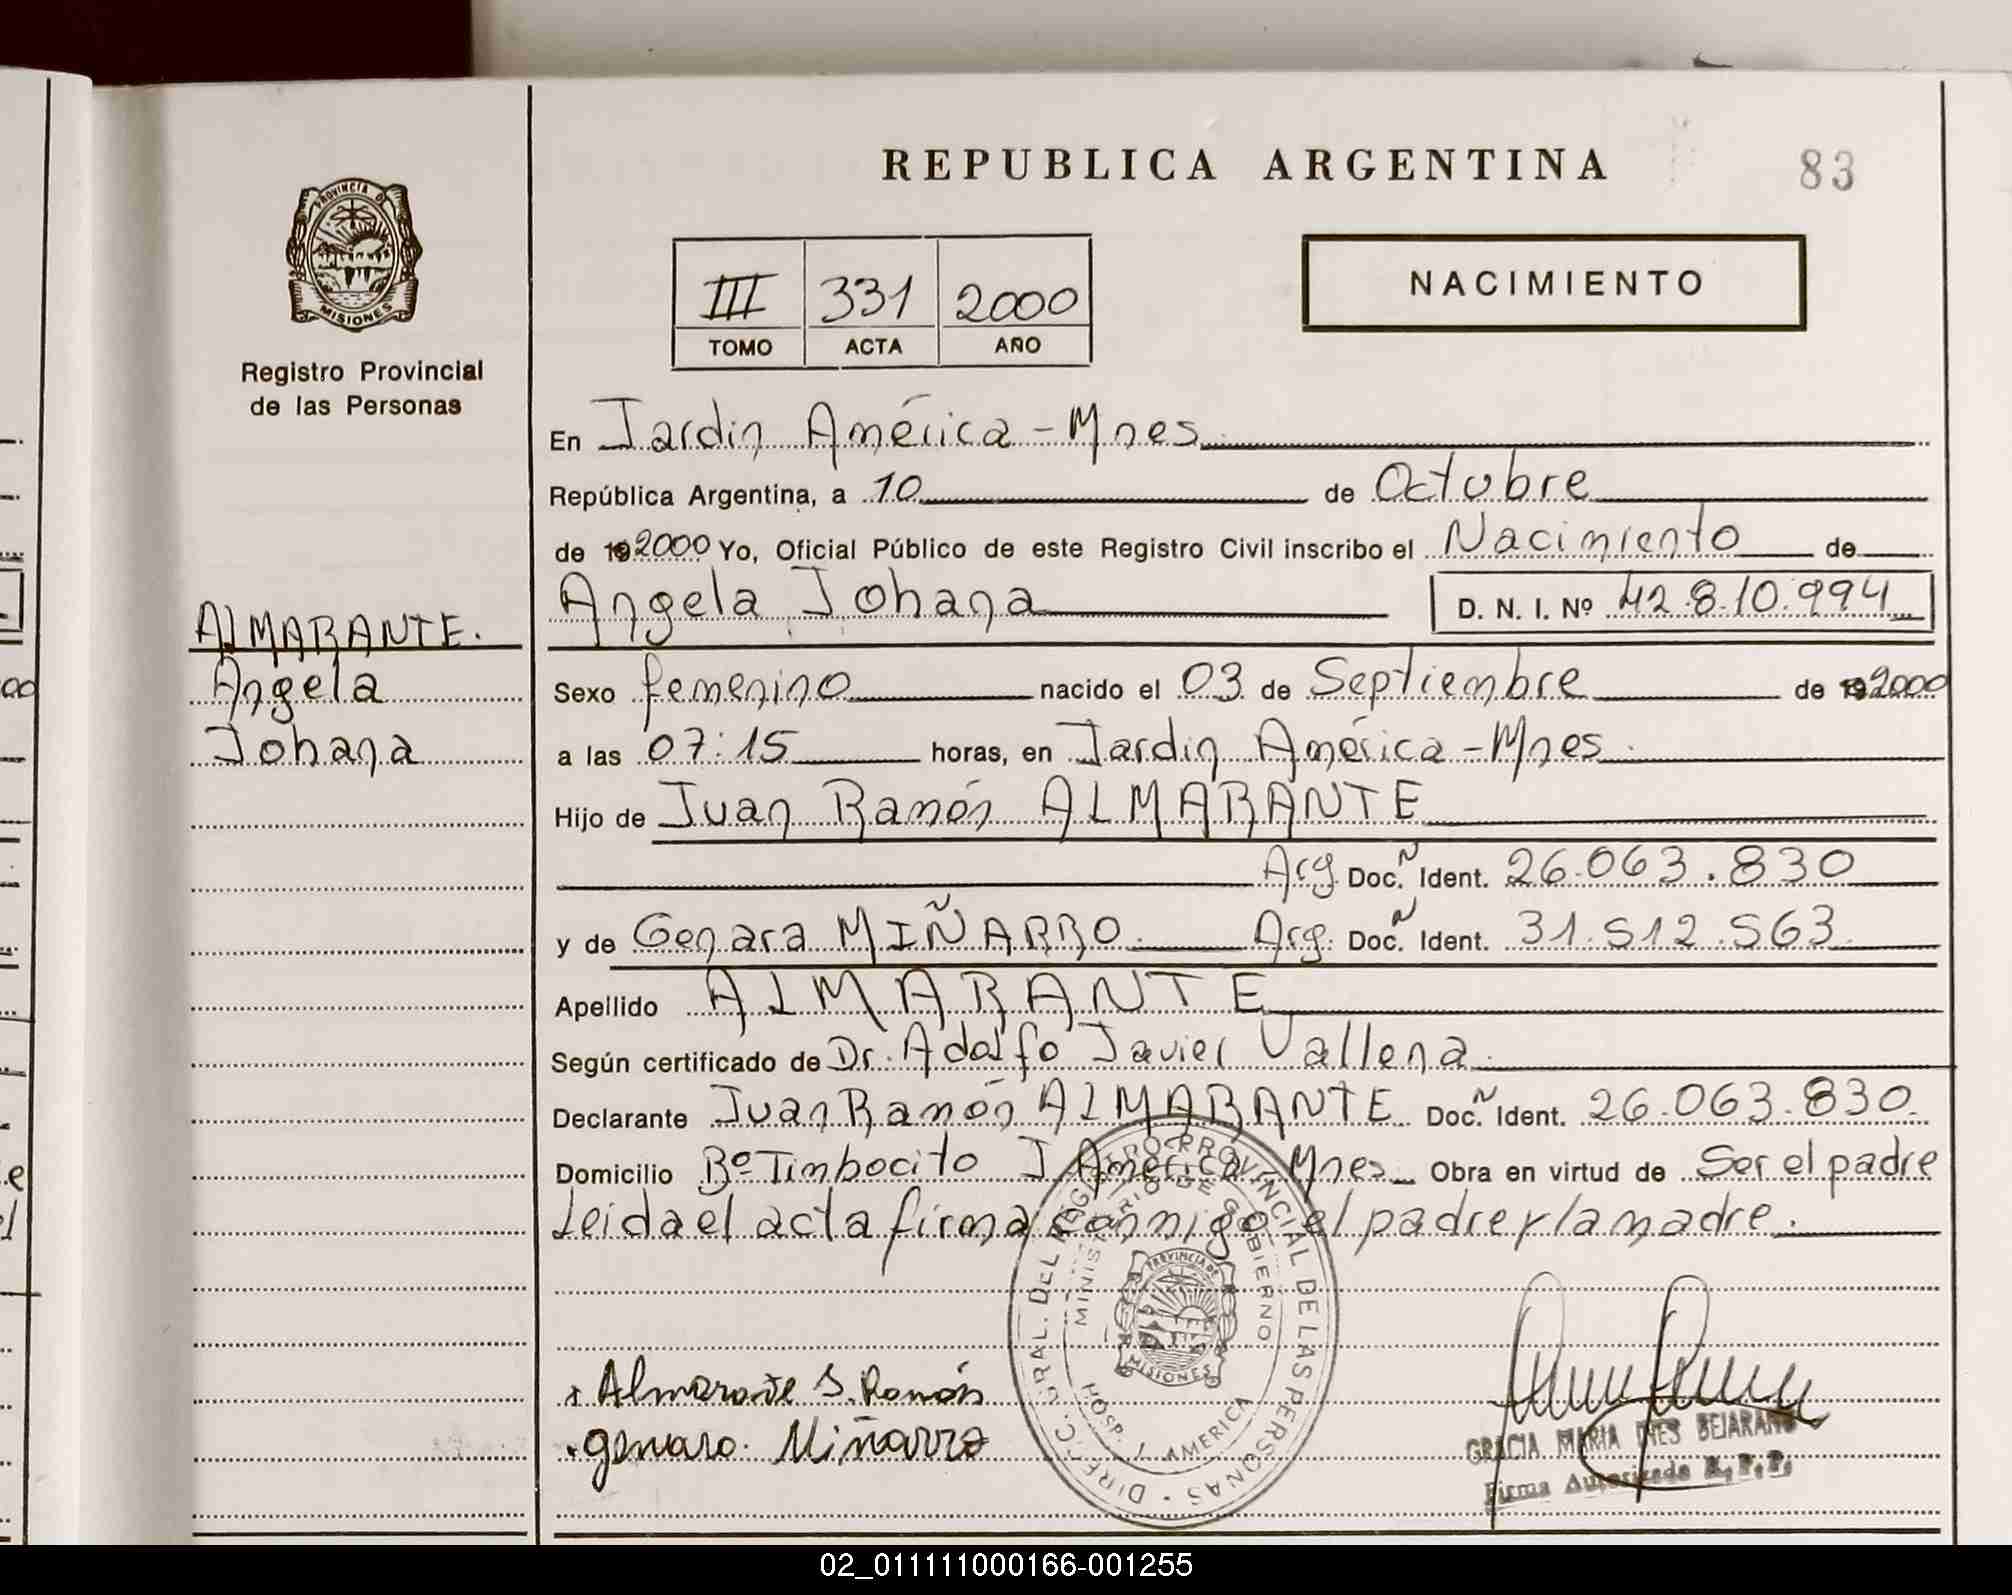 REPUBLICA ARGENTINA
83
PROVINCIA D
MISIONES
Registro Provincial
de las Personas
III 331 2000
TOMO ACTA AÑO
NACIMIENTO
En Jardin América - Mnes
República Argentina, a 10 de Octubre
de 19 2000 Yo, Oficial Público de este Registro Civil inscribo el Nacimiento de
Angela Johana D. N. I. Nº 42.810.994
ALMARANTE.
Angela
Johana
Sexo femenino nacido el 03 de Septiembre de 19 2000
a las 07:15 horas, en Jardin América - Mnes.
Hijo de Juan Ramón ALMARANTE
Arg. Doc. N Ident. 26.063.830
y de Genara MIÑARRO. Arg. Doc. N Ident. 31.512.563.
Apellido ALMARANTE
Según certificado de Dr. Adolfo Javier Vallena.
Declarante Juan Ramón ALMARANTE Doc. N Ident. 26.063.830.
Domicilio Bº Timbocito J. América - Mnes Obra en virtud de Ser el padre
Leida el acta firma conmigo el padre y la madre.
DIREC. GRAL. DEL REGISTRO PROVINCIAL DE LAS PERSONAS
MINISTERIO DE GOBIERNO
PROVINCIA DE
MISIONES
HOSP. J. AMERICA
x Almarante J. Ramón
genaro. Miñarro
GRACIA MARIA INES BEJARANO
Firma Autorizada R. P. P.
02_011111000166-001255